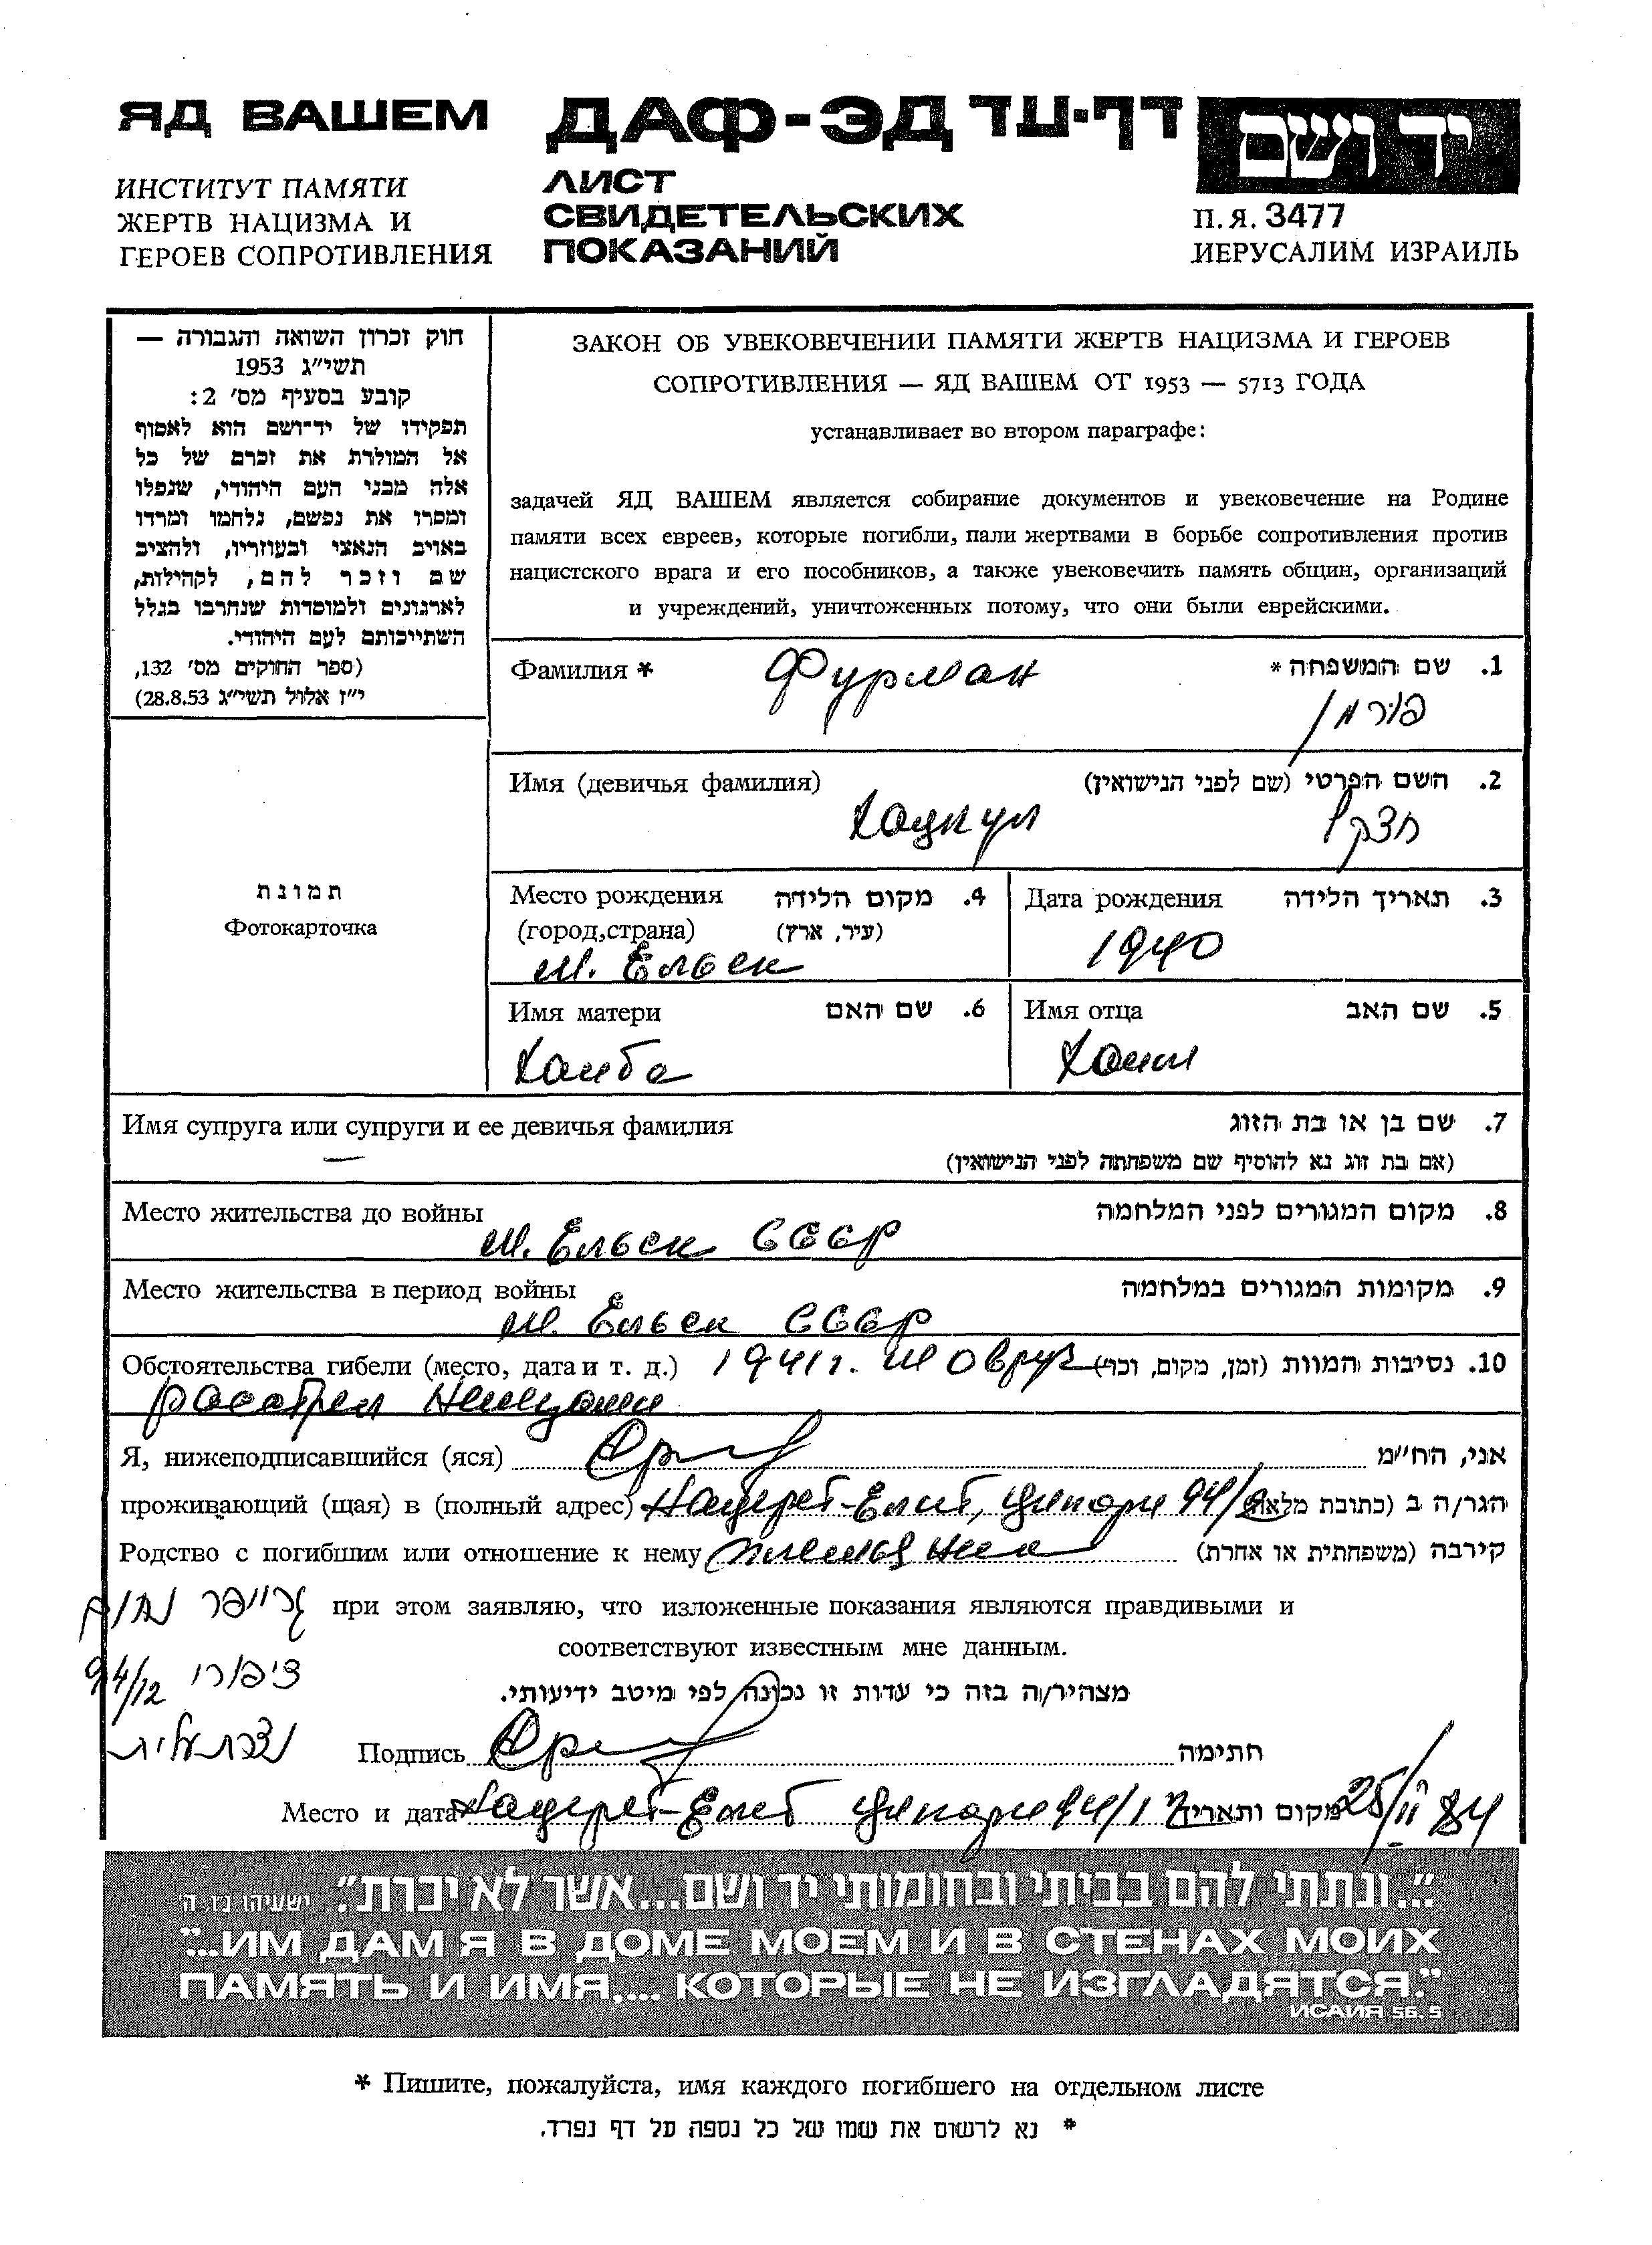 ЯД ВАШЕМ
ИНСТИТУТ ПАМЯТИ
ЖЕРТВ НАЦИЗМА И
ГЕРОЕВ СОПРОТИВЛЕНИЯ
ДАФ-ЭД דף-עד
ЛИСТ
СВИДЕТЕЛЬСКИХ
ПОКАЗАНИЙ
יד ושם
П.Я. 3477
ИЕРУСАЛИМ ИЗРАИЛЬ
חוק זכרון השואה והגבורה —
תשי״ג 1953
קובע בסעיף מס׳ 2:
תפקידו של יד־ושם הוא לאסוף
אל המולדת את זכרם של כל
אלה מבני העם היהודי, שנפלו
ומסרו את נפשם, נלחמו ומרדו
באויב הנאצי ובעוזריו, ולהציב
שם וזכר להם, לקהילות,
לארגונים ולמוסדות שנחרבו בגלל
השתייכותם לעם היהודי.
(ספר החוקים מס׳ 132,
י״ז אלול תשי״ג 28.8.53)
ЗАКОН ОБ УВЕКОВЕЧЕНИИ ПАМЯТИ ЖЕРТВ НАЦИЗМА И ГЕРОЕВ
СОПРОТИВЛЕНИЯ — ЯД ВАШЕМ ОТ 1953 — 5713 ГОДА
устанавливает во втором параграфе:
задачей ЯД ВАШЕМ является собирание документов и увековечение на Родине
памяти всех евреев, которые погибли, пали жертвами в борьбе сопротивления против
нацистского врага и его пособников, а также увековечить память общин, организаций
и учреждений, уничтоженных потому, что они были еврейскими.
Фамилия * Фурман 1. שם המשפחה *
פורמן
Имя (девичья фамилия) 2. השם הפרטי (שם לפני הנישואין)
Хацкул חצקל
תמונת
Фотокарточка
Место рождения 4. מקום הלידה
(город,страна) (עיר, ארץ)
м. Ельск
Дата рождения 3. תאריך הלידה
1940
Имя матери 6. שם האם
Имя отца 5. שם האב
Хаим
Имя супруга или супруги и ее девичья фамилия 7. שם בן או בת הזוג
— (אם בת זוג נא להוסיף שם משפחתה לפני הנישואין)
Место жительства до войны 8. מקום המגורים לפני המלחמה
м. Ельск СССР
Место жительства в период войны 9. מקומות המגורים במלחמה
м. Ельск СССР
Обстоятельства гибели (место, дата и т. д.) 1941г. м Овруч 10. נסיבות המוות (זמן, מקום, וכו׳)
расстрел немцами
Я, нижеподписавшийся (яся) אני, הח״מ
проживающий (щая) в (полный адрес) Нацерет-Елит, Ципори 94/ הגר/ה ב (כתובת מלאה)
Родство с погибшим или отношение к нему племянник קירבה (משפחתית או אחרת)
נחום
при этом заявляю, что изложенные показания являются правдивыми и
соответствуют известным мне данным.
ציפורי 94/12
מצהיר/ה בזה כי עדות זו נכונה לפי מיטב ידיעותי.
נצרת עלית
Подпись חתימה
Место и дата Нацерет-Елит Ципори 94/12 מקום ותאריך 25/II 84
״...ונתתי להם בביתי ובחומותי יד ושם...אשר לא יכרת״. ישעיהו נ״ו, ה׳
"...ИМ ДАМ Я В ДОМЕ МОЕМ И В СТЕНАХ МОИХ
ПАМЯТЬ И ИМЯ.... КОТОРЫЕ НЕ ИЗГЛАДЯТСЯ."
ИСАИЯ 56. 5
* Пишите, пожалуйста, имя каждого погибшего на отдельном листе
* נא לרשום את שמו של כל נספה על דף נפרד.